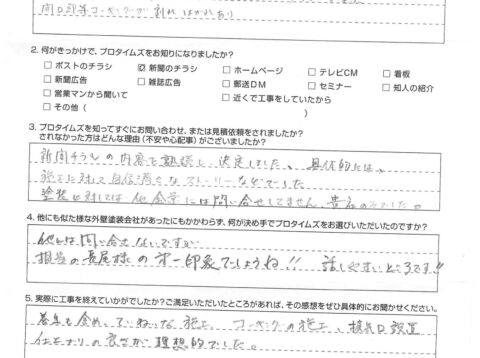 開口部等コーキングが割れ はがれあり
2. 何がきっかけで、プロタイムズをお知りになりましたか?
□ ポストのチラシ ☑ 新聞のチラシ □ ホームページ □ テレビCM □ 看板
□ 新聞広告 □ 雑誌広告 □ 郵送DM □ セミナー □ 知人の紹介
□ 営業マンから聞いて □ 近くで工事をしていたから
□ その他 ( )
3. プロタイムズを知ってすぐにお問い合わせ、または見積依頼をされましたか?
されなかった方はどんな理由(不安や心配事)がございましたか?
新聞チラシの内容を熟読し、決定しました、具体的には、
施工に対して自信満々なストーリーなどでした
塗装に対しては他企業には問い合せしてません 貴店のみでした。
4. 他にも似た様な外壁塗装会社があったにもかかわらず、何が決め手でプロタイムズをお選びいただいたのですか?
他には問い合せないですが
担当の長尾様の第一印象でしょうね!! 話しやすいところです!!
5. 実際に工事を終えていかがでしたか?ご満足いただいたところがあれば、その感想をぜひ具体的にお聞かせください。
養生も含めて、ていねいな施工 コーキングの施工、換気口設置
仕上がりの良さが理想的でした。